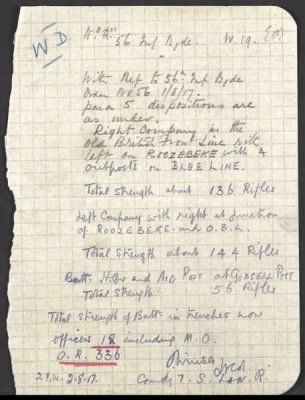 WD
56 Inf Bgde. W.19.
With Ref to 56th Inf Bgde
Order No 56 1/8/17.
para 5 dispositions are
as under.
Right Company in the
old British Front Line with
left on ROOZEBEKE with 4
outposts on BLUE LINE.
Total strength about 136 Rifles
Left Company with right at Junction
of ROOZEBEKE and O.B.L.
Total Strength about 144 Rifles
Batt. H.Qrs and AID POST at GODSEN POST
Total Strength 56 Rifles
Total Strength of Batt in trenches now
officers 12 including M.O.
O.R. 336
Comdg 7. S. Lan. R.
2.8.17.